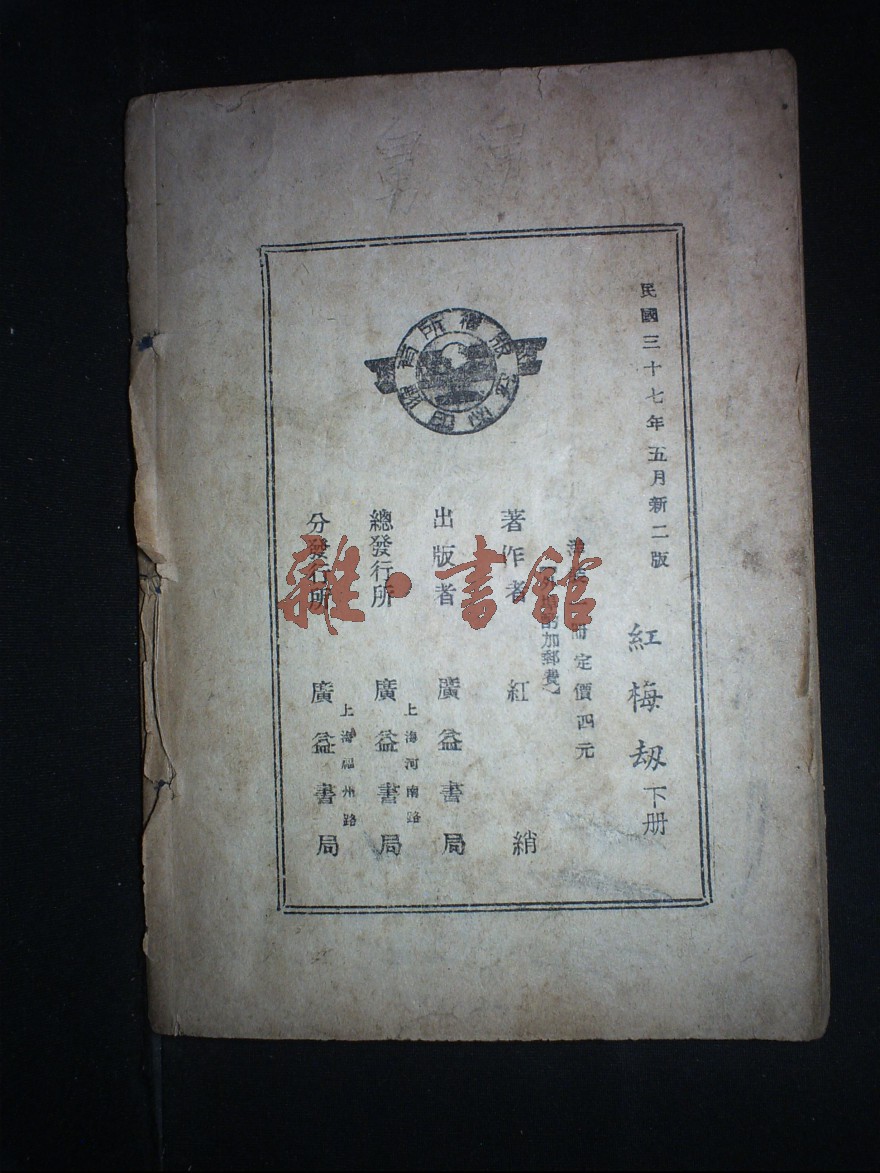 民國三十七年五月新二版
紅梅刼 下册
册定價四元
酌加郵費
著作者 紅綃
出版者 廣益書局
上海河南路
總發行所 廣益書局
上海福州路
分發行所 廣益書局
版權所有
雜·書館